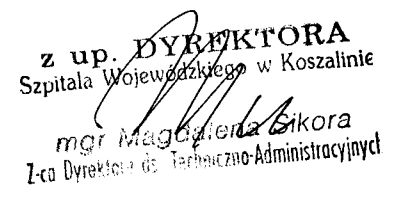 z up. DYREKTORA
Szpitala Wojewódzkiego w Koszalinie
mgr Magdalena Sikora
Z-ca Dyrektora ds. Techniczno-Administracyjnych